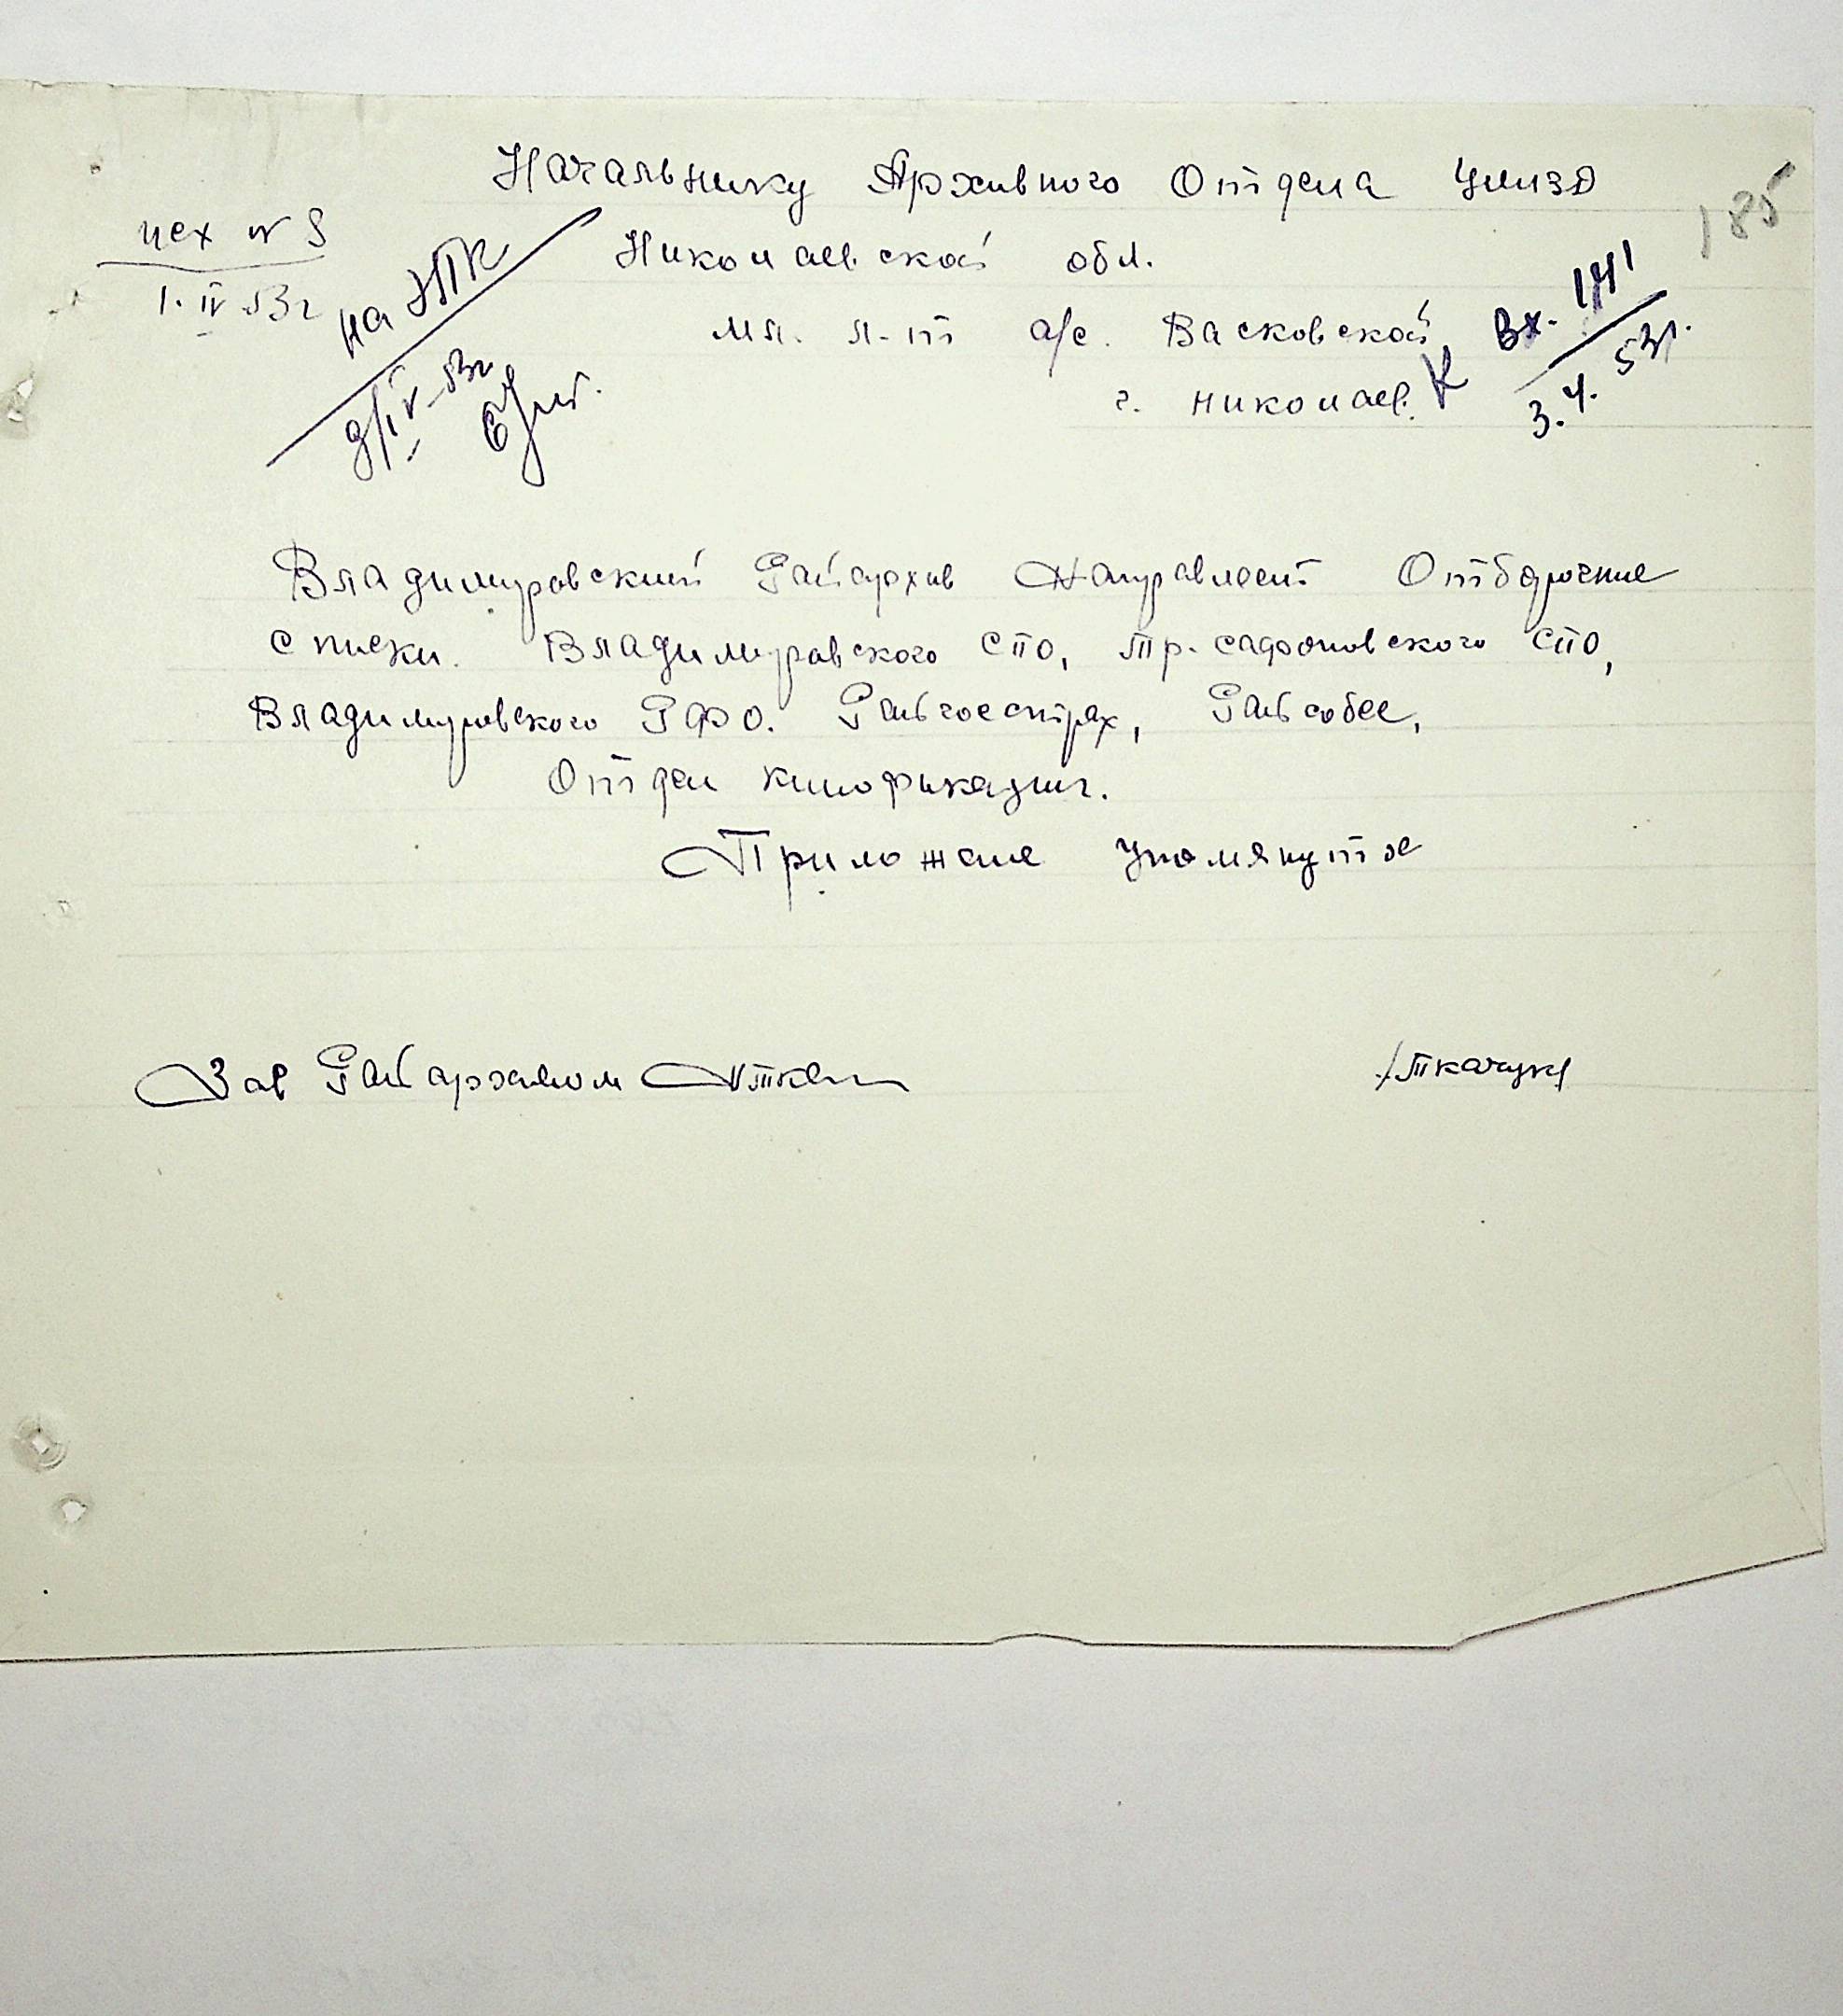 Начальнику Архивного Отдела УМВД
185
исх № 9
1. IV 53г
Николаевской обл.
на ЭПК
9/IV-53г
мл. л-т а/с. Васковской
Вх. 141
3.4. 53г.
г. Николаев.
Владимировский Райархив Направляет Отборочние
списки. Владимировского СПО, Тр. сафоновского СПО,
Владимировского РФО. Райгосстрах, Райсобес,
Отдел кинофикации.
Приложение упомянутое
Зав Райархивом
/Ткачук/